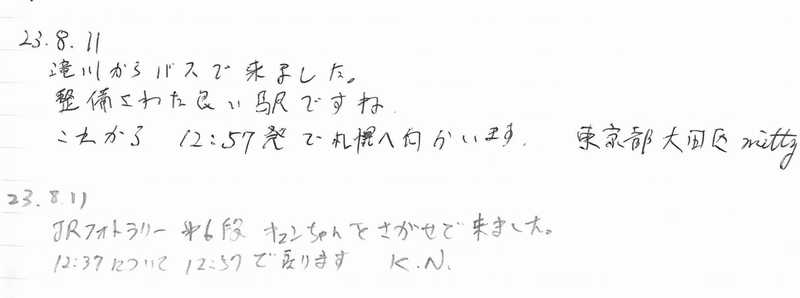 23.8.11
滝川からバスで来ました。
整備された良い駅ですね
これから 12:57発で札幌へ向かいます. 東京都大田区 mitty
23.8.11
JRフォトラリー 第6段 キュンちゃんをさがせで来ました。
12:37について 12:57で戻ります K.N.